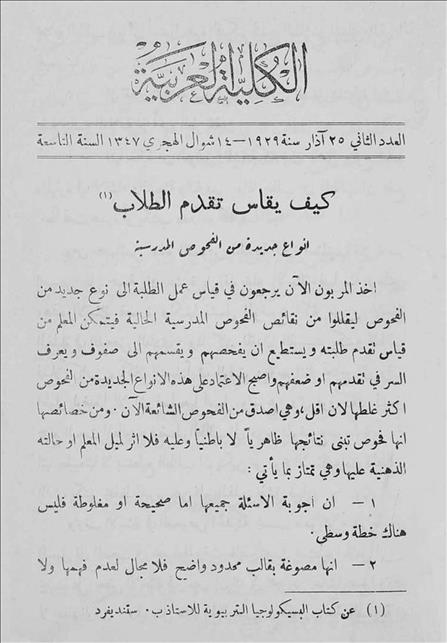 الكلية العربية
العدد الثاني ٢٥ آذار سنة ١٩٢٩ – ١٤ شوال الهجري ١٣٤٧ السنة التاسعة
كيف يقاس تقدم الطلاب (١)
انواع جديدة من الفحوص المدرسية
اخذ المربون الآن يرجعون في قياس عمل الطلبة الى نوع جديد من
الفحوص ليقللوا من نقائص الفحوص المدرسية الحالية فيتمكن المعلم من
قياس تقدم طلبته ويستطيع ان يفحصهم ويقسمهم الى صفوف ويعرف
السر في تقدمهم او ضعفهم واصبح الاعتماد على هذه الانواع الجديدة من الفحوص
اكثر غلطها لان اقل، وهي اصدق من الفحوص الشائعة الآن. ومن خصائصها
انها فحوص تبنى نتائجها ظاهرياً لا باطنياً وعليه فلا اثر لميل المعلم او حالته
الذهنية عليها وهي تمتاز بما يأتي :
١ – ان اجوبة الاسئلة جميعها اما صحيحة او مغلوطة فليس
هناك خطة وسطى.
٢ – انها مصوغة بقالب محدود واضح فلا مجال لعدم فهمها ولا
(١) عن كتاب البسيكولوجيا التربيوية للاستاذ. ستنديفرد